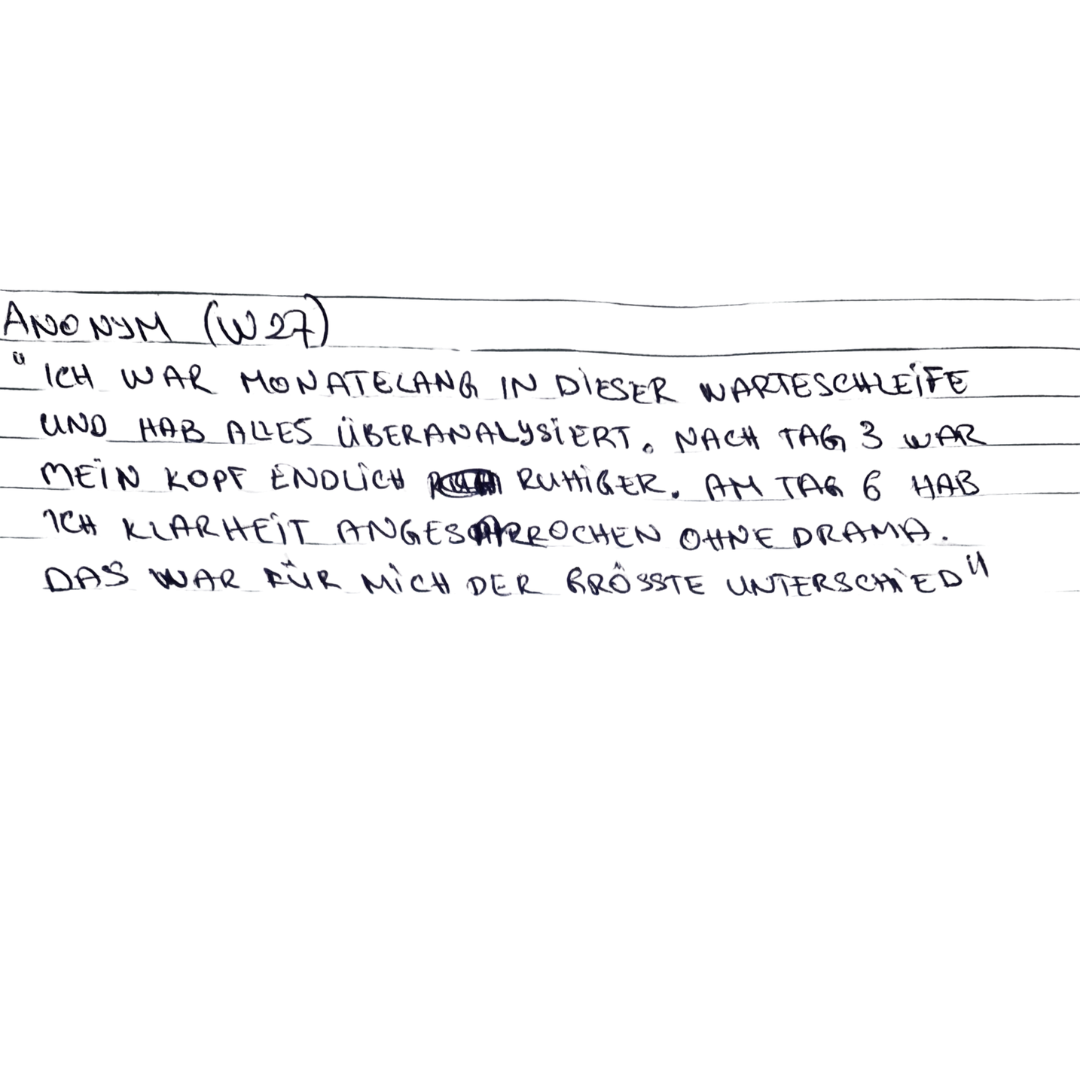 ANONYM (W27)
"ICH WAR MONATELANG IN DIESER WARTESCHLEIFE
UND HAB ALLES ÜBERANALYSIERT. NACH TAG 3 WAR
MEIN KOPF ENDLICH RUHIGER. AM TAG 6 HAB
ICH KLARHEIT ANGESPROCHEN OHNE DRAMA.
DAS WAR FÜR MICH DER GRÖSSTE UNTERSCHIED"